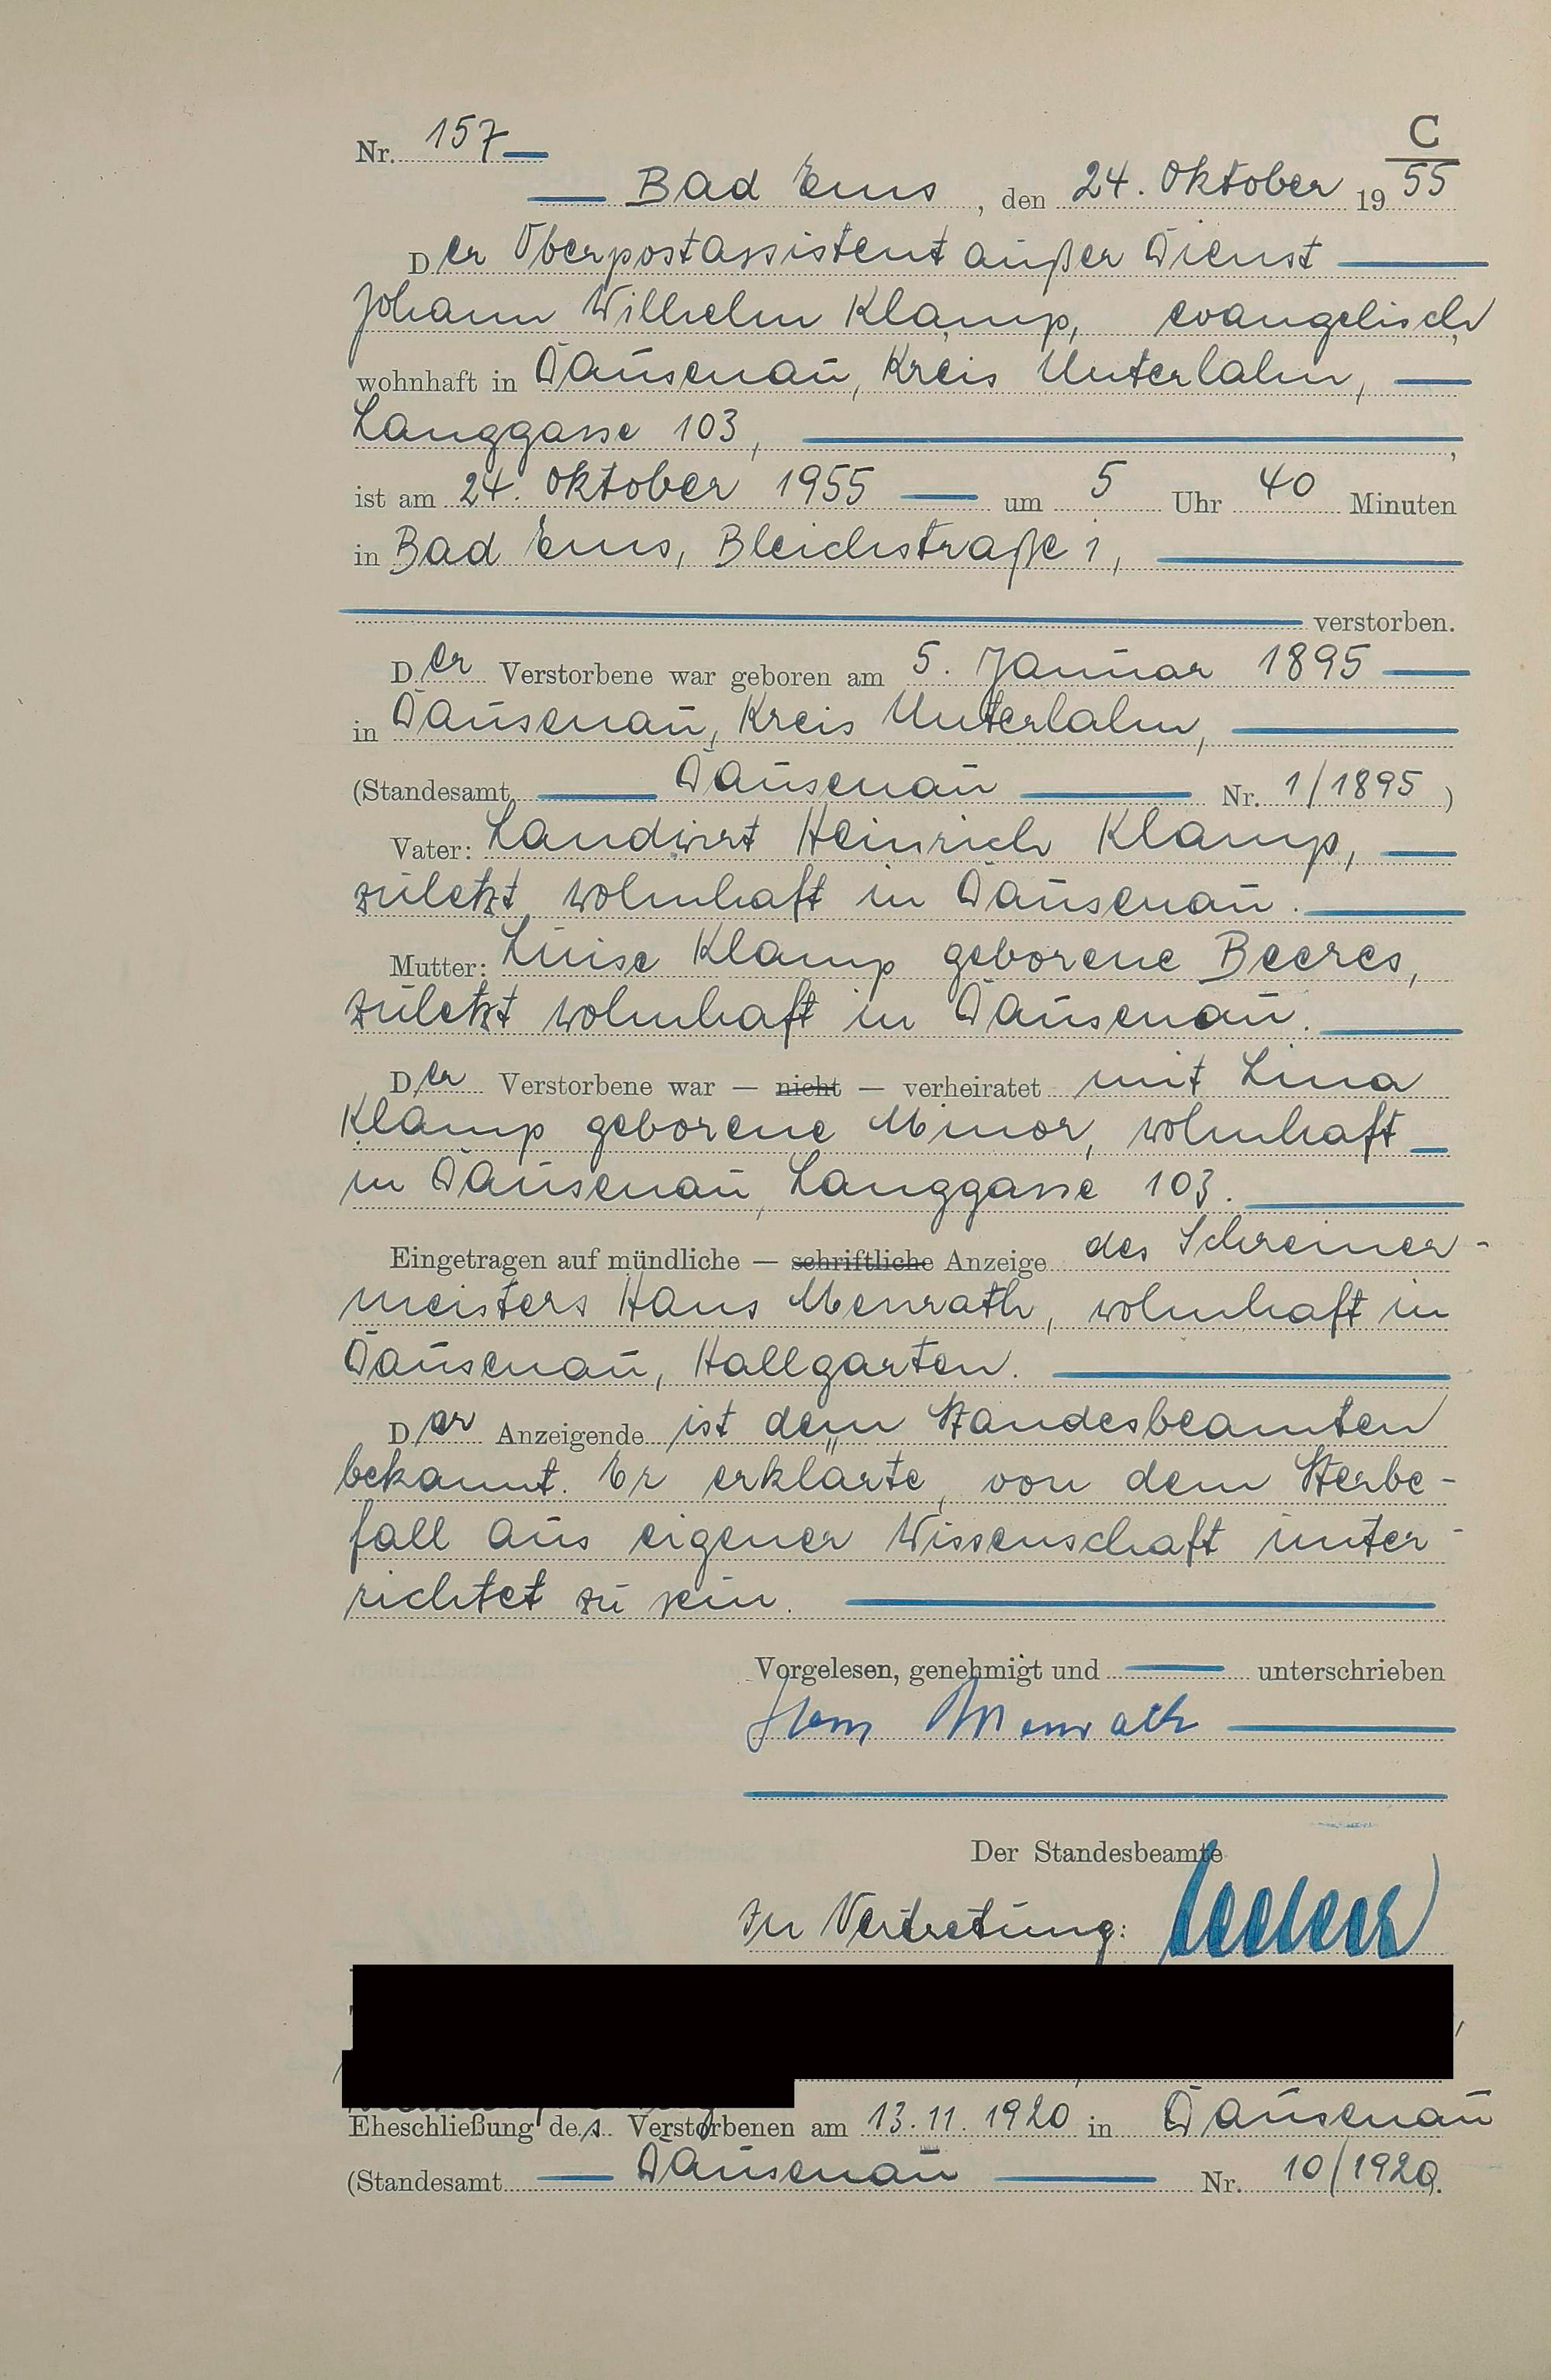 C
Nr. 157
Bad Ems, den 24. Oktober 1955
Der Oberpostassistent außer Dienst
Johann Wilhelm Klamp, evangelisch,
wohnhaft in Dausenau, Kreis Unterlahn,
Langgasse 103,
ist am 24. Oktober 1955 um 5 Uhr 40 Minuten
in Bad Ems, Bleichstraße 1,
verstorben.
Der Verstorbene war geboren am 5. Januar 1895
in Dausenau, Kreis Unterlahn,
(Standesamt Dausenau Nr. 1/1895)
Vater: Landwirt Heinrich Klamp,
zuletzt wohnhaft in Dausenau.
Mutter: Luise Klamp geborene Beeres,
zuletzt wohnhaft in Dausenau.
Der Verstorbene war — nicht — verheiratet mit Lina
Klamp geborene Minor, wohnhaft
in Dausenau, Langgasse 103.
Eingetragen auf mündliche — schriftliche Anzeige des Schreiner-
meisters Hans Menrath, wohnhaft in
Dausenau, Hallgarten.
Der Anzeigende ist dem Standesbeamten
bekannt. Er erklärte, von dem Sterbe-
fall aus eigener Wissenschaft unter-
richtet zu sein.
Vorgelesen, genehmigt und unterschrieben
Hans Menrath
Der Standesbeamte
In Vertretung:
Eheschließung des Verstorbenen am 13.11.1920 in Dausenau
(Standesamt Dausenau Nr. 10/1920.